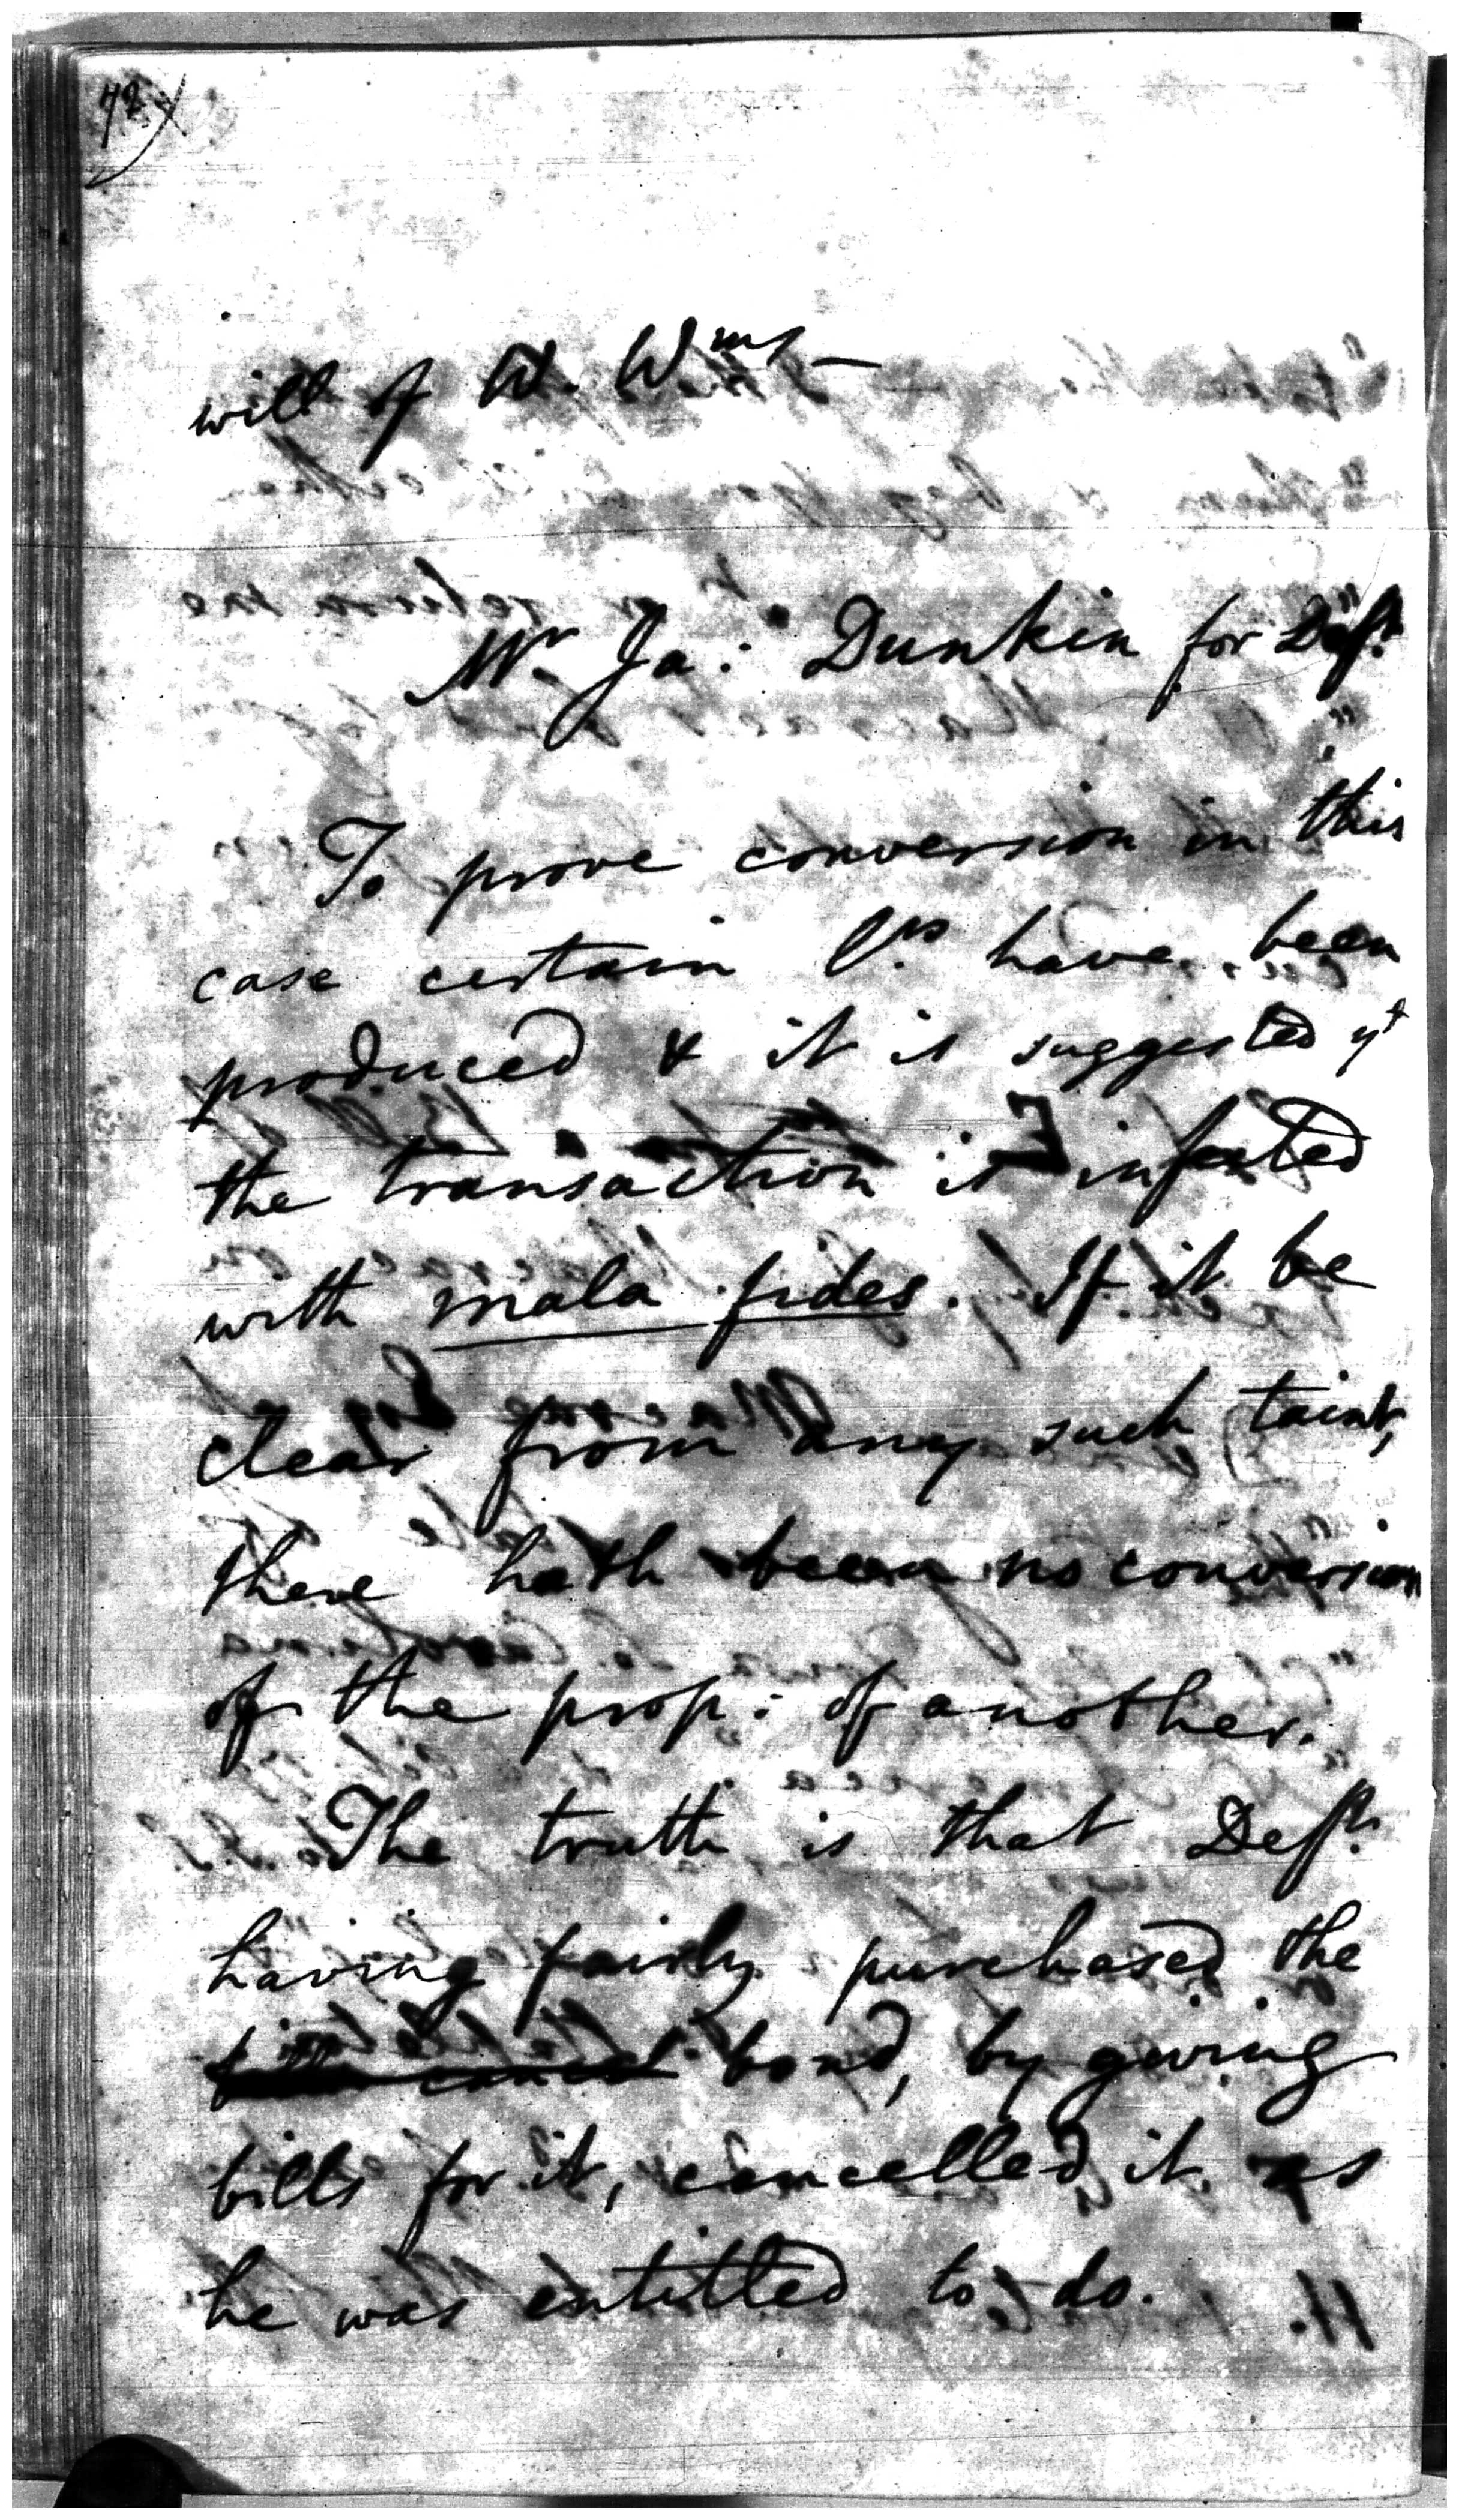 72)
will of W. Wms —
Mr Ja: Dunkin for Deft.
To prove conversion in this
case certain Lrs have been
produced & it is suggested yt
the transaction is infected
with mala fides. If it be
clear from any such taint,
there hath been no conversion
of the prop: of another.
The truth is that Deft.
having fairly purchased the
bond, by giving
bills for it, cancelled it as
he was entitled to do.